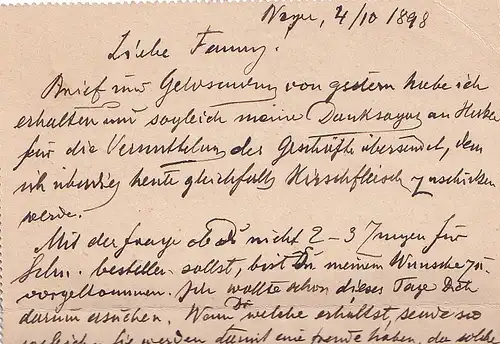 4/10 1898
Liebe Fanny.
Brief und Geldsendung von gestern habe ich
erhalten und sogleich meine Danksagung an
für die Vermittelung des Geschäfts übersendet, dem
ich überdies heute gleichfalls Hirschfleisch zuschicken
werde.
Mit der Frage ob Du nicht 2-3 Jungen für
Schn. bestellen sollst, bist Du meinem Wunsche zu-
vorgekommen. Ich wollte schon dieser Tage Dich
darum ersuchen. Wenn Du welche erhältst, sende sie
sogleich. Sie werden damit eine Freude haben, da solche